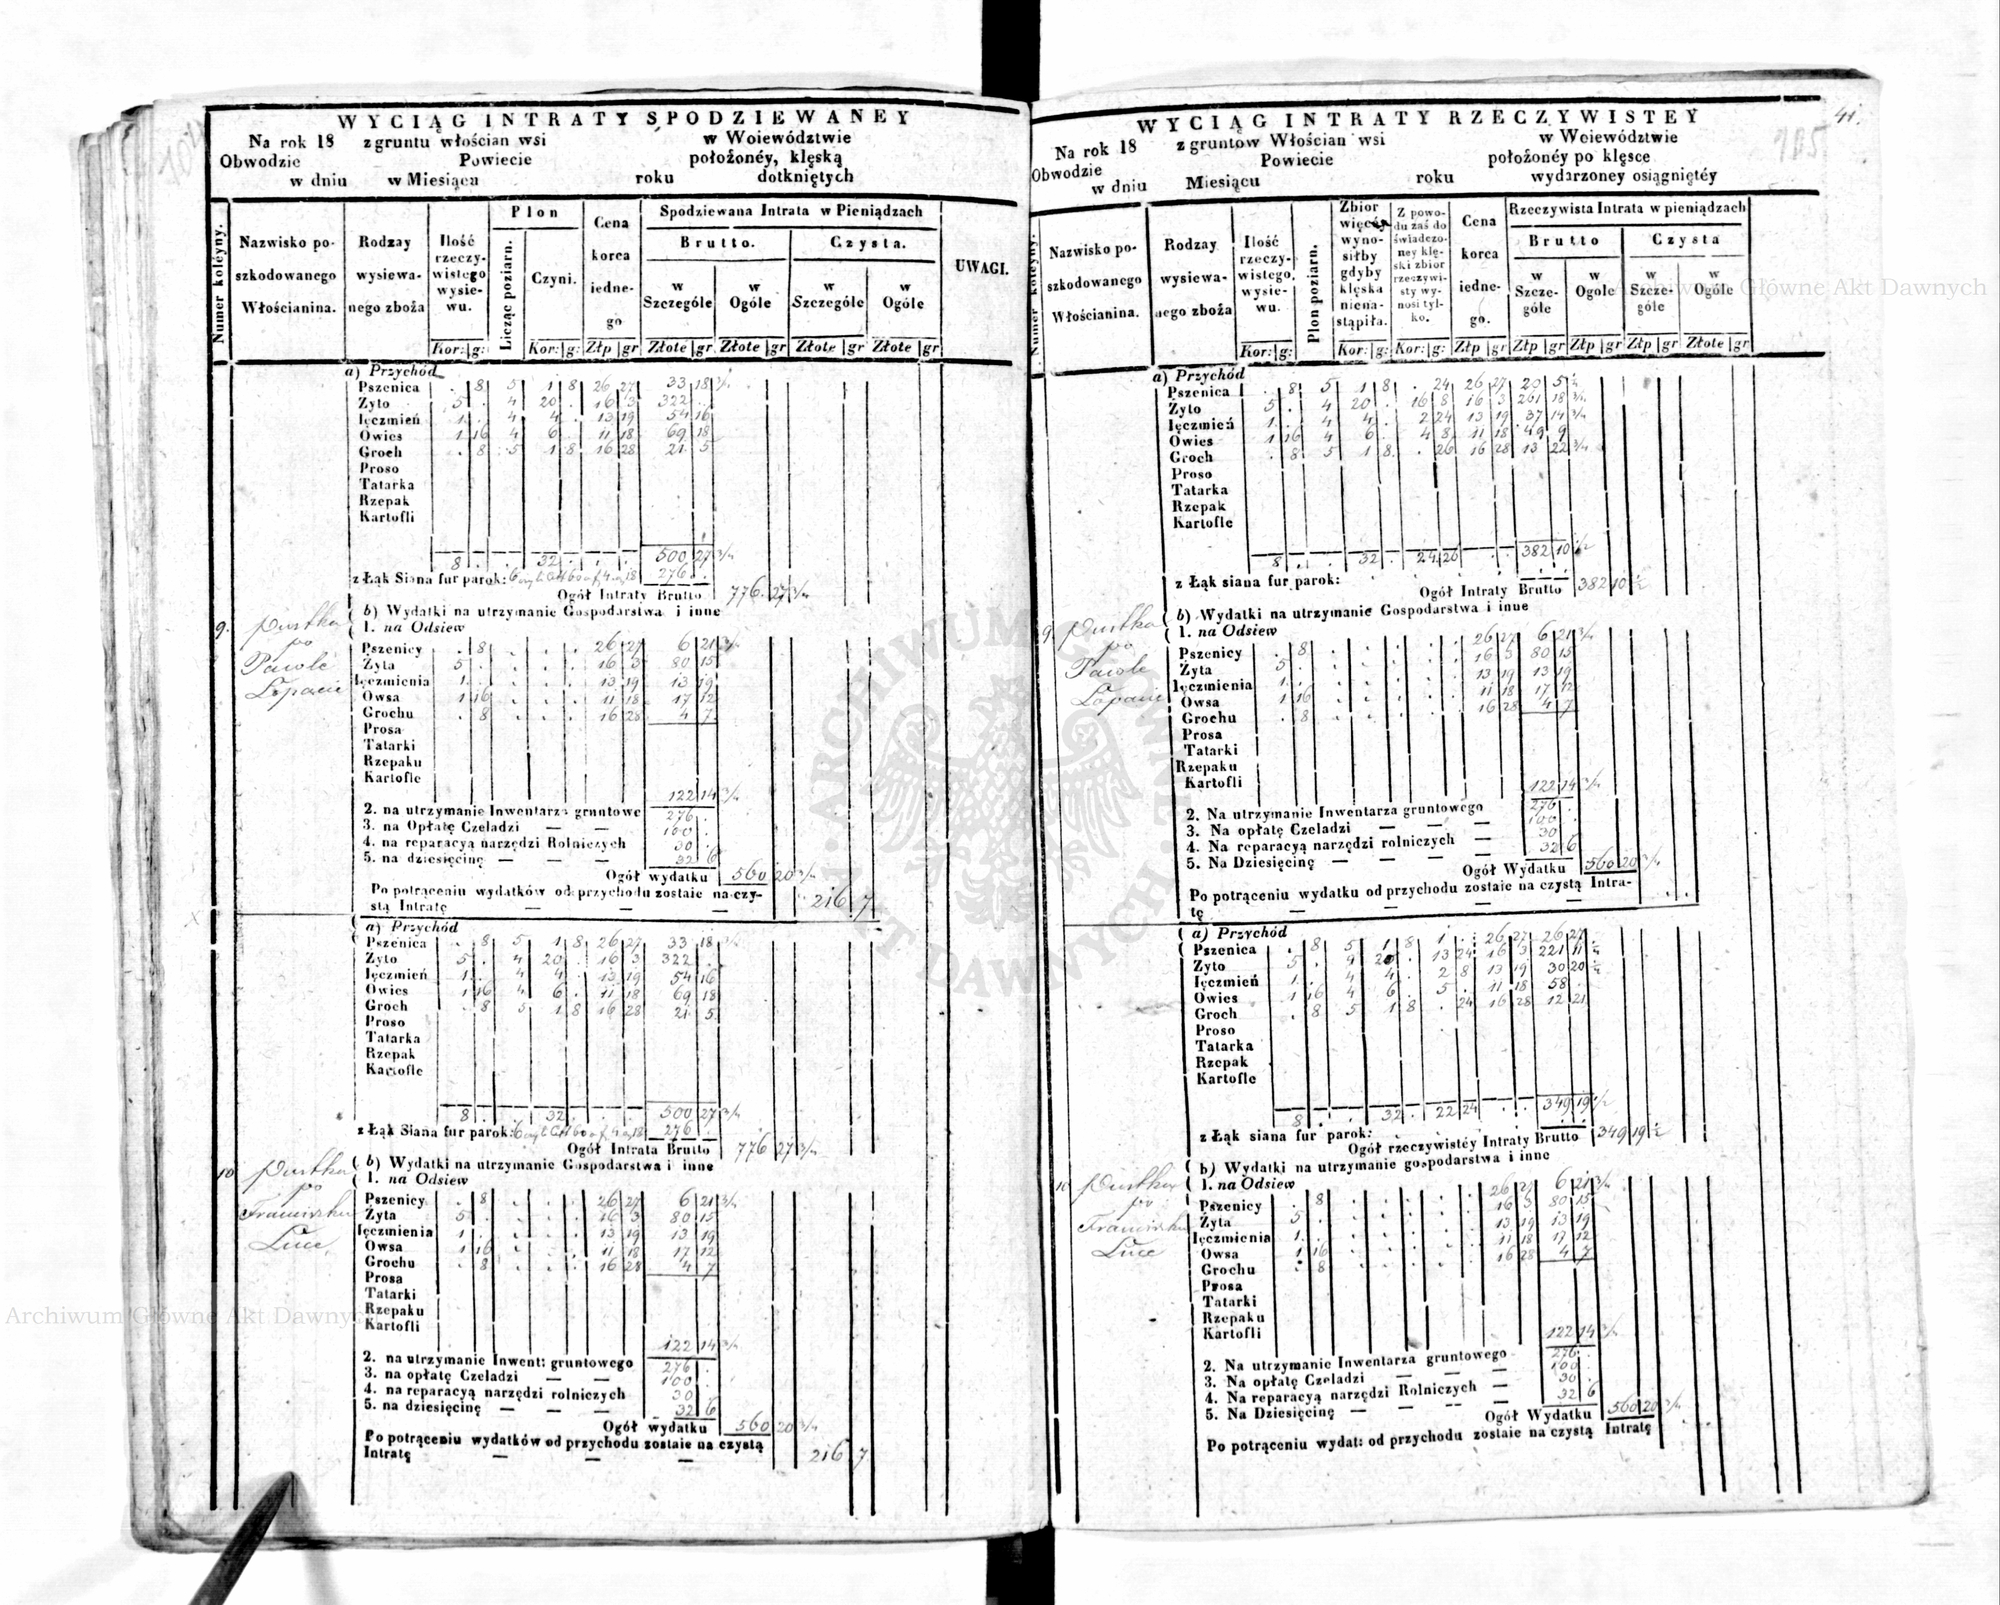 WYCIĄG INTRATY SPODZIEWANEY
Na rok 18 z gruntu włościan wsi w Woiewództwie
Obwodzie Powiecie położonéy, klęską
w dniu w Miesiącu roku dotkniętych
Numer koleyny.
Nazwisko poszkodowanego Włościanina.
Rodzay wysiewanego zboża
Ilość rzeczywistego wysiewu.
Plon
Licząc poziarn.
Czyni.
Cena korca iednego
Spodziewana Intrata w Pieniądzach
Brutto. Czysta.
w Szczególe w Ogóle w Szczególe w Ogóle
UWAGI.
Kor: g: Kor: g: Złp gr Złote gr Złote gr Złote gr Złote gr
a) Przychód
Pszenica . 8 5 1 8 26 27 33 18 3/4
Żyto 5 . 4 20 . 16 3 322 .
Ięczmień 1 . 4 4 . 13 19 54 16
Owies 1 16 4 6 . 11 18 69 18
Groch . 8 5 1 8 16 28 21 5
Proso
Tatarka
Rzepak
Kartofli
8 . . 32 . . . 500 27 3/4
z Łąk Siana fur parok: 276 .
Ogół Intraty Brutto 776 27 3/4
9. Pustka po Pawle
b) Wydatki na utrzymanie Gospodarstwa i inne
1. na Odsiew
Pszenicy . 8 . . . 26 27 6 21 3/4
Żyta 5 . . . . 16 3 80 15
Ięczmienia 1 . . . . 13 19 13 19
Owsa 1 16 . . . 11 18 17 12
Grochu . 8 . . . 16 28 4 7
Prosa
Tatarki
Rzepaku
Kartofle
122 14 3/4
2. na utrzymanie Inwentarza gruntowe 276 .
3. na Opłatę Czeladzi — — 100 .
4. na reparacyą narzędzi Rolniczych 30 .
5. na dziesięcinę — — — 32 6
Ogół wydatku 560 20 3/4
Po potrąceniu wydatków od przychodu zostaie na czy-
stą Intratę — — — 216 7
a) Przychód
Pszenica . 8 5 1 8 26 27 33 18 3/4
Żyto 5 . 4 20 . 16 3 322 .
Ięczmień 1 . 4 4 . 13 19 54 16
Owies 1 16 4 6 . 11 18 69 18
Groch . 8 5 1 8 16 28 21 5
Proso
Tatarka
Rzepak
Kartofle
8 . . 32 . . . 500 27 3/4
z Łąk Siana fur parok: 276 .
Ogół Intrata Brutto 776 27 3/4
10 Pustka po Franciszku Luce
b) Wydatki na utrzymanie Gospodarstwa i inne
1. na Odsiew
Pszenicy . 8 . . . 26 27 6 21 3/4
Żyta 5 . . . . 16 3 80 15
Ięczmienia 1 . . . . 13 19 13 19
Owsa 1 16 . . . 11 18 17 12
Grochu . 8 . . . 16 28 4 7
Prosa
Tatarki
Rzepaku
Kartofli
122 14 3/4
2. na utrzymanie Inwent: gruntowego 276 .
3. na opłatę Czeladzi — — 100 .
4. na reparacyą narzędzi rolniczych 30 .
5. na dziesięcinę — — — 32 6
Ogół wydatku 560 20 3/4
Po potrąceniu wydatków od przychodu zostaie na czystą
Intratę — — — 216 7
41.
105
WYCIĄG INTRATY RZECZYWISTEY
Na rok 18 z gruntow Włościan wsi w Woiewództwie
Obwodzie Powiecie położonéy po klęsce
w dniu Miesiącu roku wydarzoney osiągniętéy
Numer koleyny.
Nazwisko poszkodowanego Włościanina.
Rodzay wysiewanego zboża
Ilość rzeczywistego, wysiewu.
Plon poziarn.
Zbior więcéy wynosiłby gdyby klęska nienastąpiła.
Z powodu zaś doświadczoney klęski zbior rzeczywisty wynosi tylko.
Cena korca iednego.
Rzeczywista Intrata w pieniądzach
Brutto Czysta
w Szczególe w Ogole w Szczególe w Ogóle
Kor: g: Kor: g: Kor: g: Złp gr Złp gr Złp gr Złp gr Złote gr
a) Przychód
Pszenica . 8 5 1 8 . 24 26 27 20 5 1/4
Żyto 5 . 4 20 . 16 8 16 3 261 18 3/4
Ięczmień 1 . 4 4 . 2 24 13 19 37 14 3/4
Owies 1 16 4 6 . 4 8 11 18 49 9
Groch . 8 5 1 8 . 26 16 28 13 22 3/4
Proso
Tatarka
Rzepak
Kartofle
8 . . 32 . 24 26 . . 382 10 1/2
z Łąk siana fur parok: . .
Ogół Intraty Brutto 382 10 1/2
9. Pustka po Pawle
b) Wydatki na utrzymanie Gospodarstwa i inne
1. na Odsiew
Pszenicy . 8 26 27 6 21 3/4
Żyta 5 . 16 3 80 15
Ięczmienia 1 . 13 19 13 19
Owsa 1 16 11 18 17 12
Grochu . 8 16 28 4 7
Prosa
Tatarki
Rzepaku
Kartofli
122 14 3/4
2. Na utrzymanie Inwentarza gruntowego 276 .
3. Na opłatę Czeladzi — — — 100 .
4. Na reparacyą narzędzi rolniczych — 30 .
5. Na Dziesięcinę — — — — 32 6
Ogół Wydatku 560 20 3/4
Po potrąceniu wydatku od przychodu zostaie na czystą Intra-
tę — — — —
a) Przychód
Pszenica . 8 5 1 8 1 . 26 27 26 27
Żyto 5 . 4 20 . 13 24 16 3 221 11 1/4
Ięczmień 1 . 4 4 . 2 8 13 19 30 20 1/4
Owies 1 16 4 6 . 5 . 11 18 58 .
Groch . 8 5 1 8 . 24 16 28 12 21
Proso
Tatarka
Rzepak
Kartofle
8 . . 32 . 22 24 . . 349 19 1/2
z Łąk siana fur parok: . .
Ogół rzeczywistéy Intraty Brutto 349 19 1/2
10 Pustka po Franciszku Luce
b) Wydatki na utrzymanie gospodarstwa i inne
1. na Odsiew
Pszenicy . 8 26 27 6 21 3/4
Żyta 5 . 16 3 80 15
Ięczmienia 1 . 13 19 13 19
Owsa 1 16 11 18 17 12
Grochu . 8 16 28 4 7
Prosa
Tatarki
Rzepaku
Kartofli
122 14 3/4
2. Na utrzymanie Inwentarza gruntowego 276 .
3. Na opłatę Czeladzi — — — 100 .
4. Na reparacyą narzędzi Rolniczych — 30 .
5. Na Dziesięcinę — — — — 32 6
Ogół Wydatku 560 20 3/4
Po potrąceniu wydat: od przychodu zostaie na czystą Intratę
Archiwum Główne Akt Dawnych
Archiwum Główne Akt Dawnych
ARCHIWUM GŁÓWNE AKT DAWNYCH